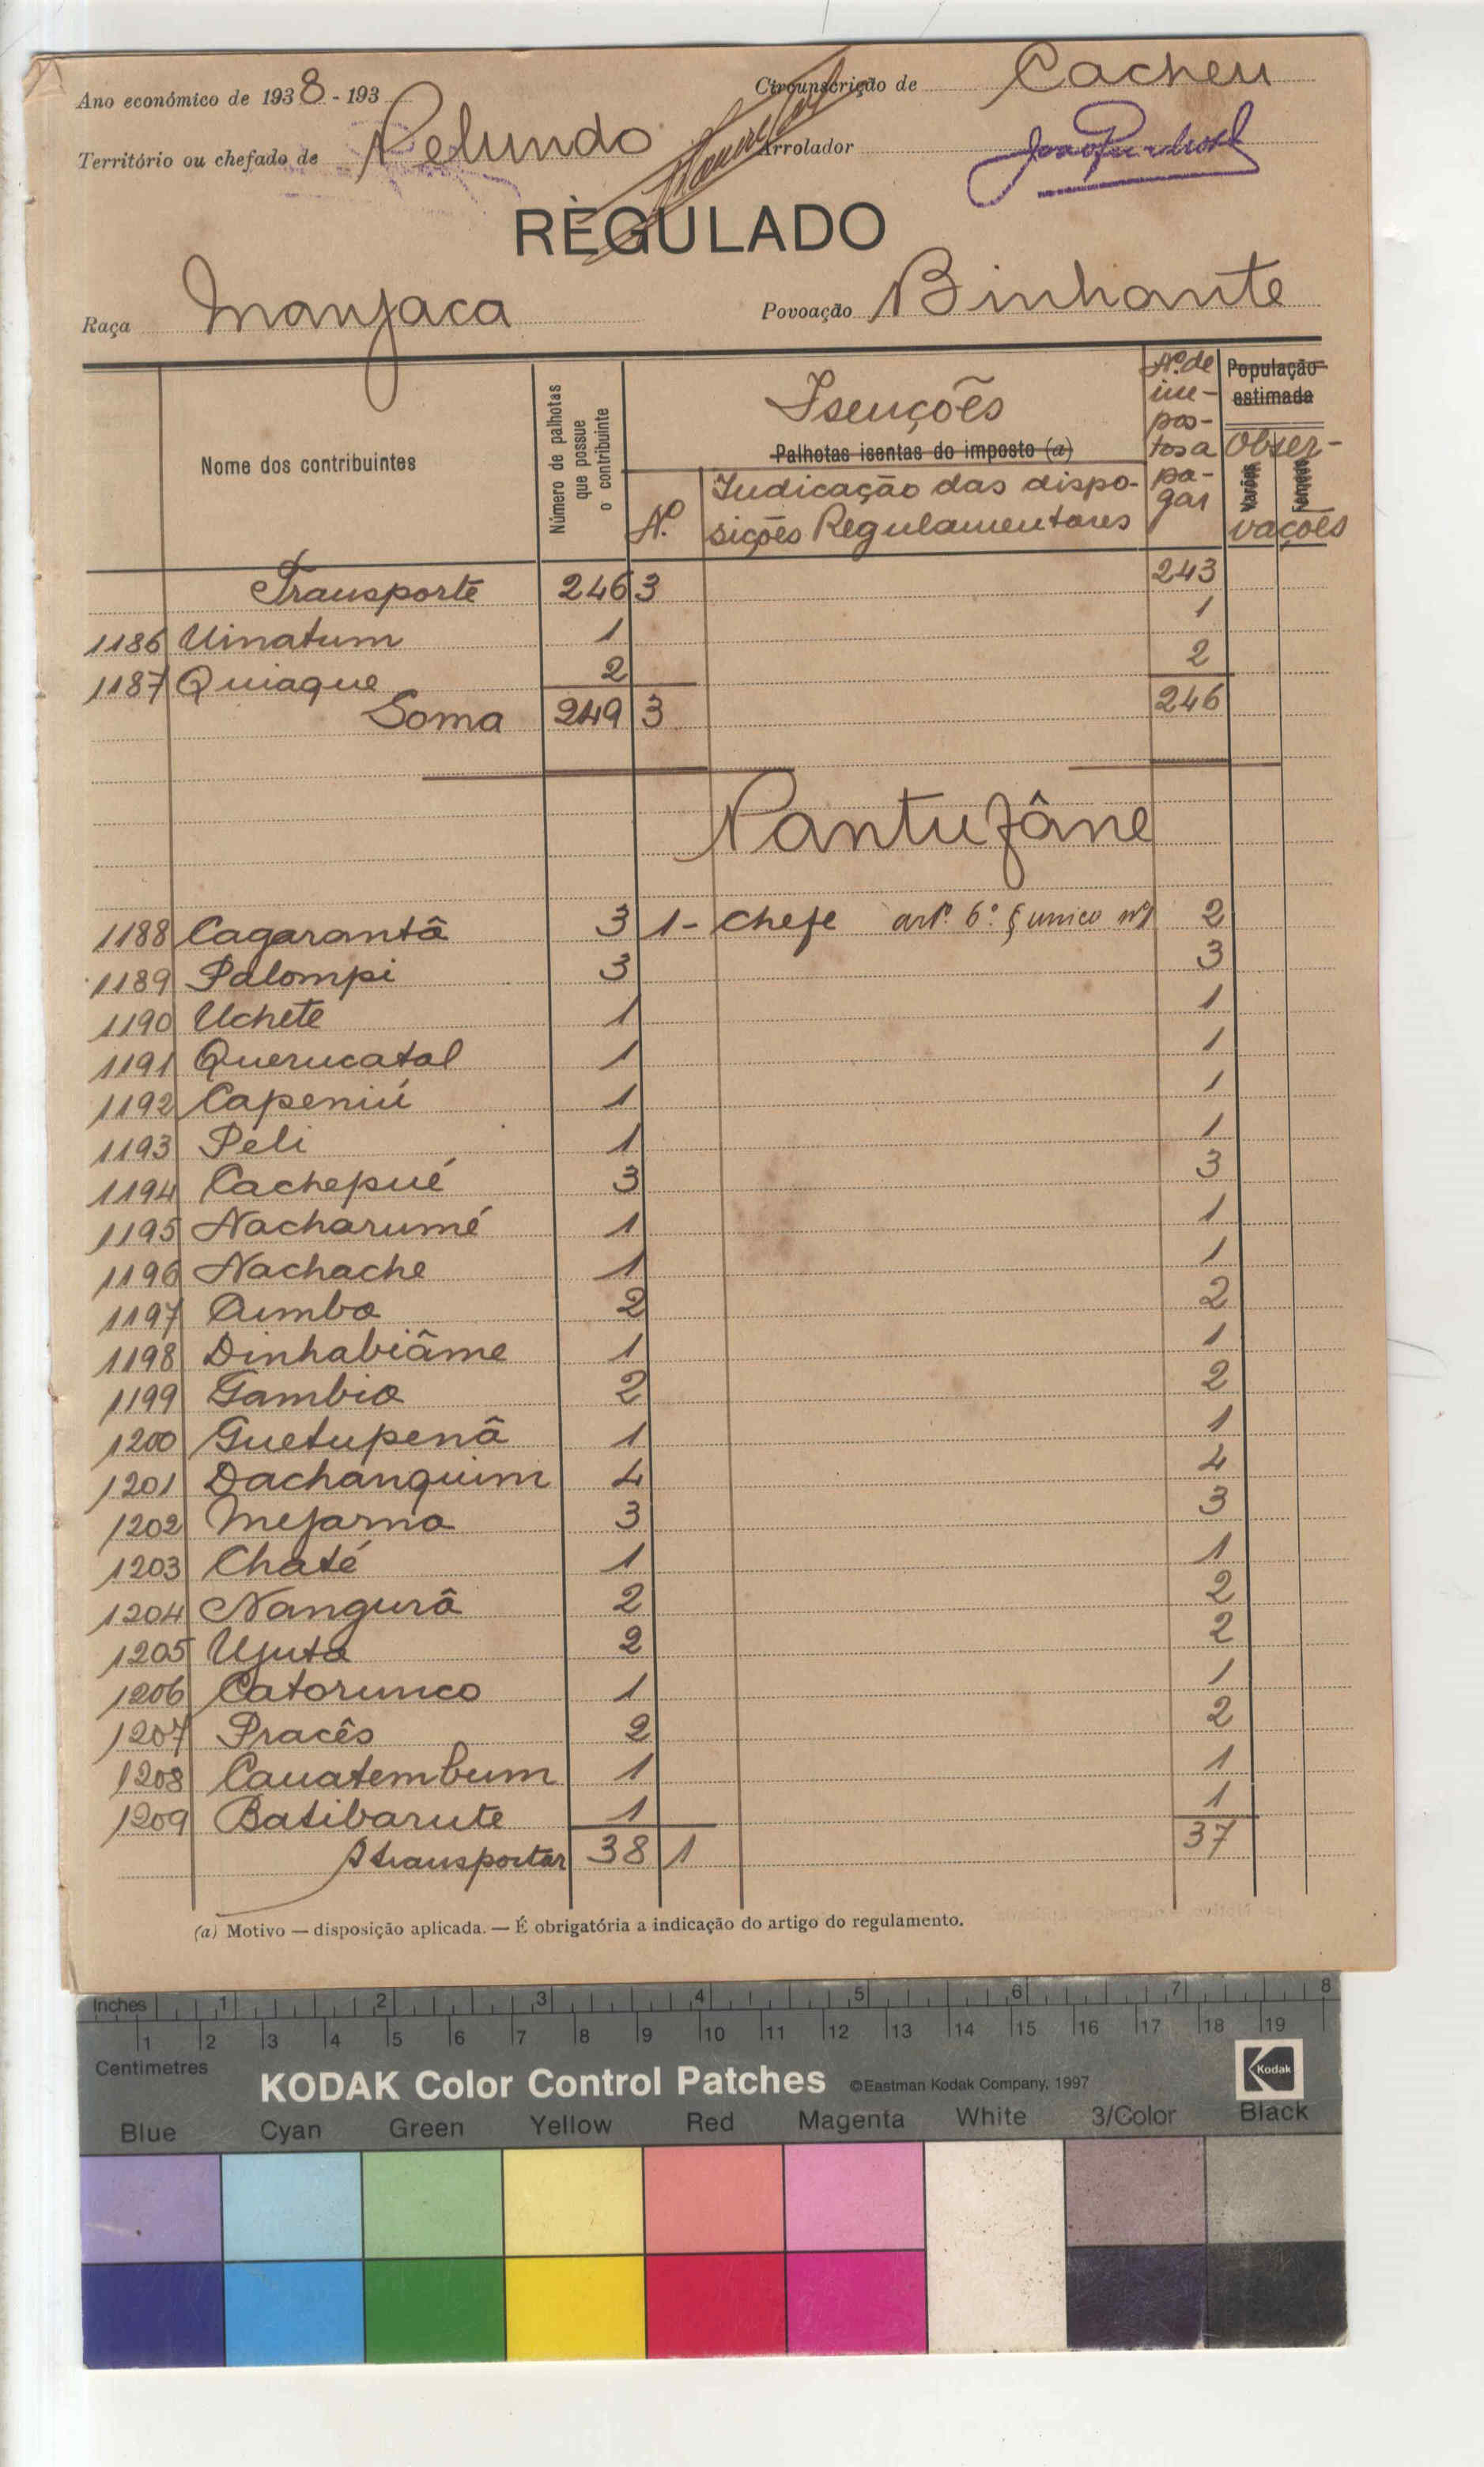 Ano económico de 1938-193
Circunscrição de Cacheu
Território ou chefado de Pelundo
Arrolador
REGULADO
Raça Manjaca
Povoação Binhante
Nome dos contribuintes
Número de palhotas que possue o contribuinte
Isenções
Palhotas isentas do imposto (a)
Nº
Indicação das dispo-
sições Regulamentares
Nº de
im-
pos-
tos a
pa-
gar
População
estimada
Obser-
Varões
Fêmeas
vações
Transporte 246 3 243
1186 Uinatum 1 1
1187 Quiaque 2 2
Soma 249 3 246
Pantufâne
1188 Cagarantâ 3 1- chefe artº 6º § unico nº1 2
1189 Palompi 3 3
1190 Uchete 1 1
1191 Querucatal 1 1
1192 Capeniú 1 1
1193 Peli 1 1
1194 Cachepué 3 3
1195 Nacharumé 1 1
1196 Nachache 1 1
1197 Cumba 2 2
1198 Dinhabiâme 1 1
1199 Gambia 2 2
1200 Guetupenâ 1 1
1201 Dachanquim 4 4
1202 Mejarma 3 3
1203 Chaté 1 1
1204 Nangurâ 2 2
1205 Ujuta 2 2
1206 Catorunco 1 1
1207 Pracês 2 2
1208 Cauatembum 1 1
1209 Batibarute 1 1
A transportar 38 1 37
(a) Motivo — disposição aplicada. — É obrigatória a indicação do artigo do regulamento.
Inches 1 2 3 4 5 6 7 8
1 2 3 4 5 6 7 8 9 10 11 12 13 14 15 16 17 18 19
Centimetres
KODAK Color Control Patches ©Eastman Kodak Company, 1997 Kodak
Blue Cyan Green Yellow Red Magenta White 3/Color Black